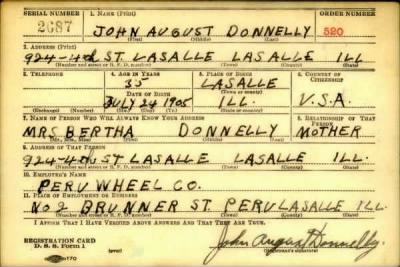 SERIAL NUMBER 1. NAME (Print) ORDER NUMBER
2687 JOHN AUGUST DONNELLY 520
(First) (Middle) (Last)
2. ADDRESS (Print)
924-4th ST. LASALLE LASALLE ILL
(Number and street or R. F. D. number) (Town) (County) (State)
3. TELEPHONE 4. AGE IN YEARS 5. PLACE OF BIRTH 6. COUNTRY OF CITIZENSHIP
35 LASALLE
DATE OF BIRTH (Town or county)
JULY 24 1905 ILL. U.S.A.
(Exchange) (Number) (Mo.) (Day) (Yr.) (State or country)
7. NAME OF PERSON WHO WILL ALWAYS KNOW YOUR ADDRESS 8. RELATIONSHIP OF THAT PERSON
MRS BERTHA DONNELLY MOTHER
(Mr., Mrs., Miss) (First) (Middle) (Last)
9. ADDRESS OF THAT PERSON
924-4th ST LASALLE LASALLE ILL.
(Number and street or R. F. D. number) (Town) (County) (State)
10. EMPLOYER'S NAME
PERU WHEEL CO.
11. PLACE OF EMPLOYMENT OR BUSINESS
No 2 BRUNNER ST. PERU LASALLE ILL
(Number and street or R. F. D. number) (Town) (County) (State)
I AFFIRM THAT I HAVE VERIFIED ABOVE ANSWERS AND THAT THEY ARE TRUE.
REGISTRATION CARD
D. S. S. Form 1 (over) John August Donnelly.
(Registrant's signature)